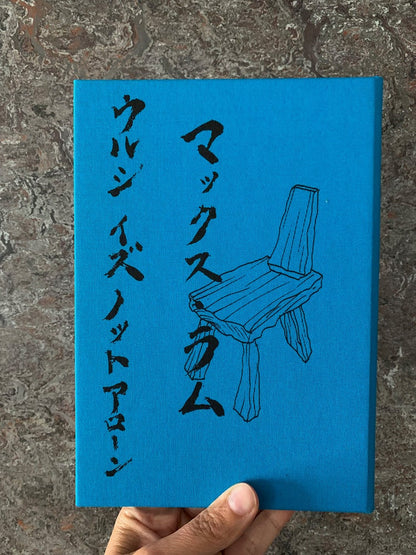 マックス・ラム
ウルシ イズ ノット アローン